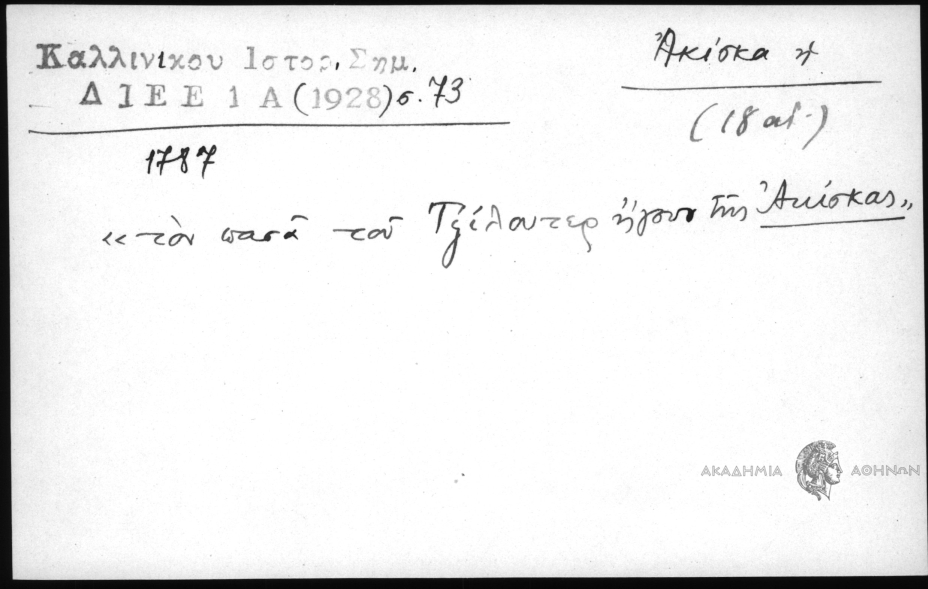 Καλλινίκου Ιστορ. Σημ.
ΔΙΕΕ 1 Α (1928) σ. 73
Ἀκίσκα ἡ
(18 αἰ.)
1787
«τὸν πασᾶ τοῦ Τζίλουτερ ἤγουν τῆς Ἀκίσκας»
ΑΚΑΔΗΜΙΑ ΑΘΗΝΩΝ